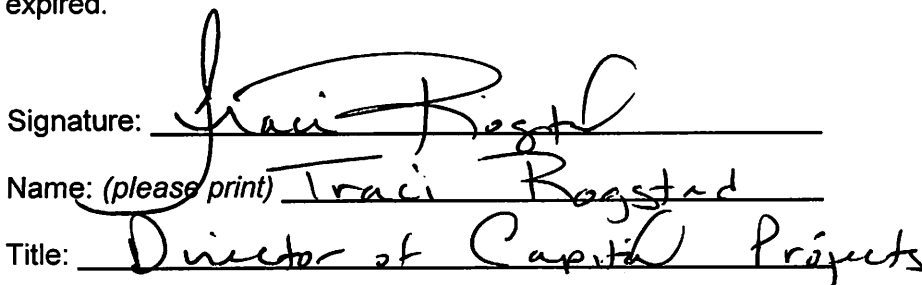 expired.
Signature: Traci Rogstad
Name: (please print) Traci Rogstad
Title: Director of Capital Projects